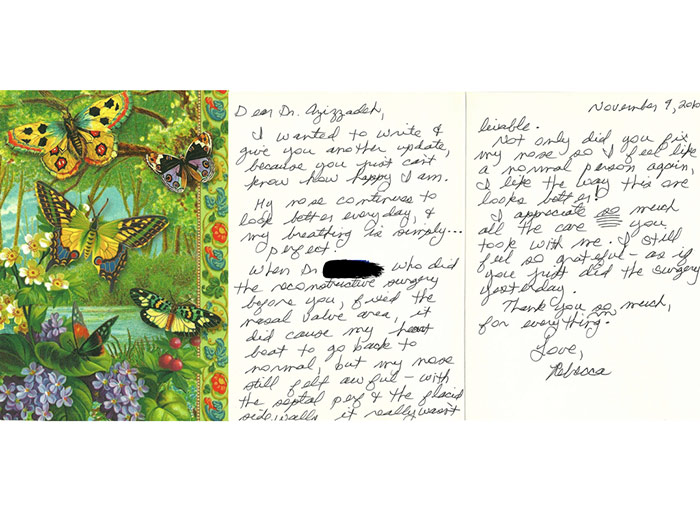 Dear Dr. Azizzadeh,
I wanted to write &
give you another update,
because you just can't
know how happy I am.
My nose continues to
look better every day, &
my breathing is simply...
perfect!
When Dr who did
the reconstructive surgery
before you, fixed the
nasal valve area, it
did cause my heart
beat to go back to
normal, but my nose
still felt awful - with
the septal perf & the flacid
side walls it really wasn't
November 9,
livable.
Not only did you fix
my nose so I feel like
a normal person again,
I like the way this one
looks better!
I appreciate so much
all the care you
took with me. I still
feel so grateful - as if
you just did the surgery
yesterday.
Thank you so much,
for everything.
Love,
Rebecca